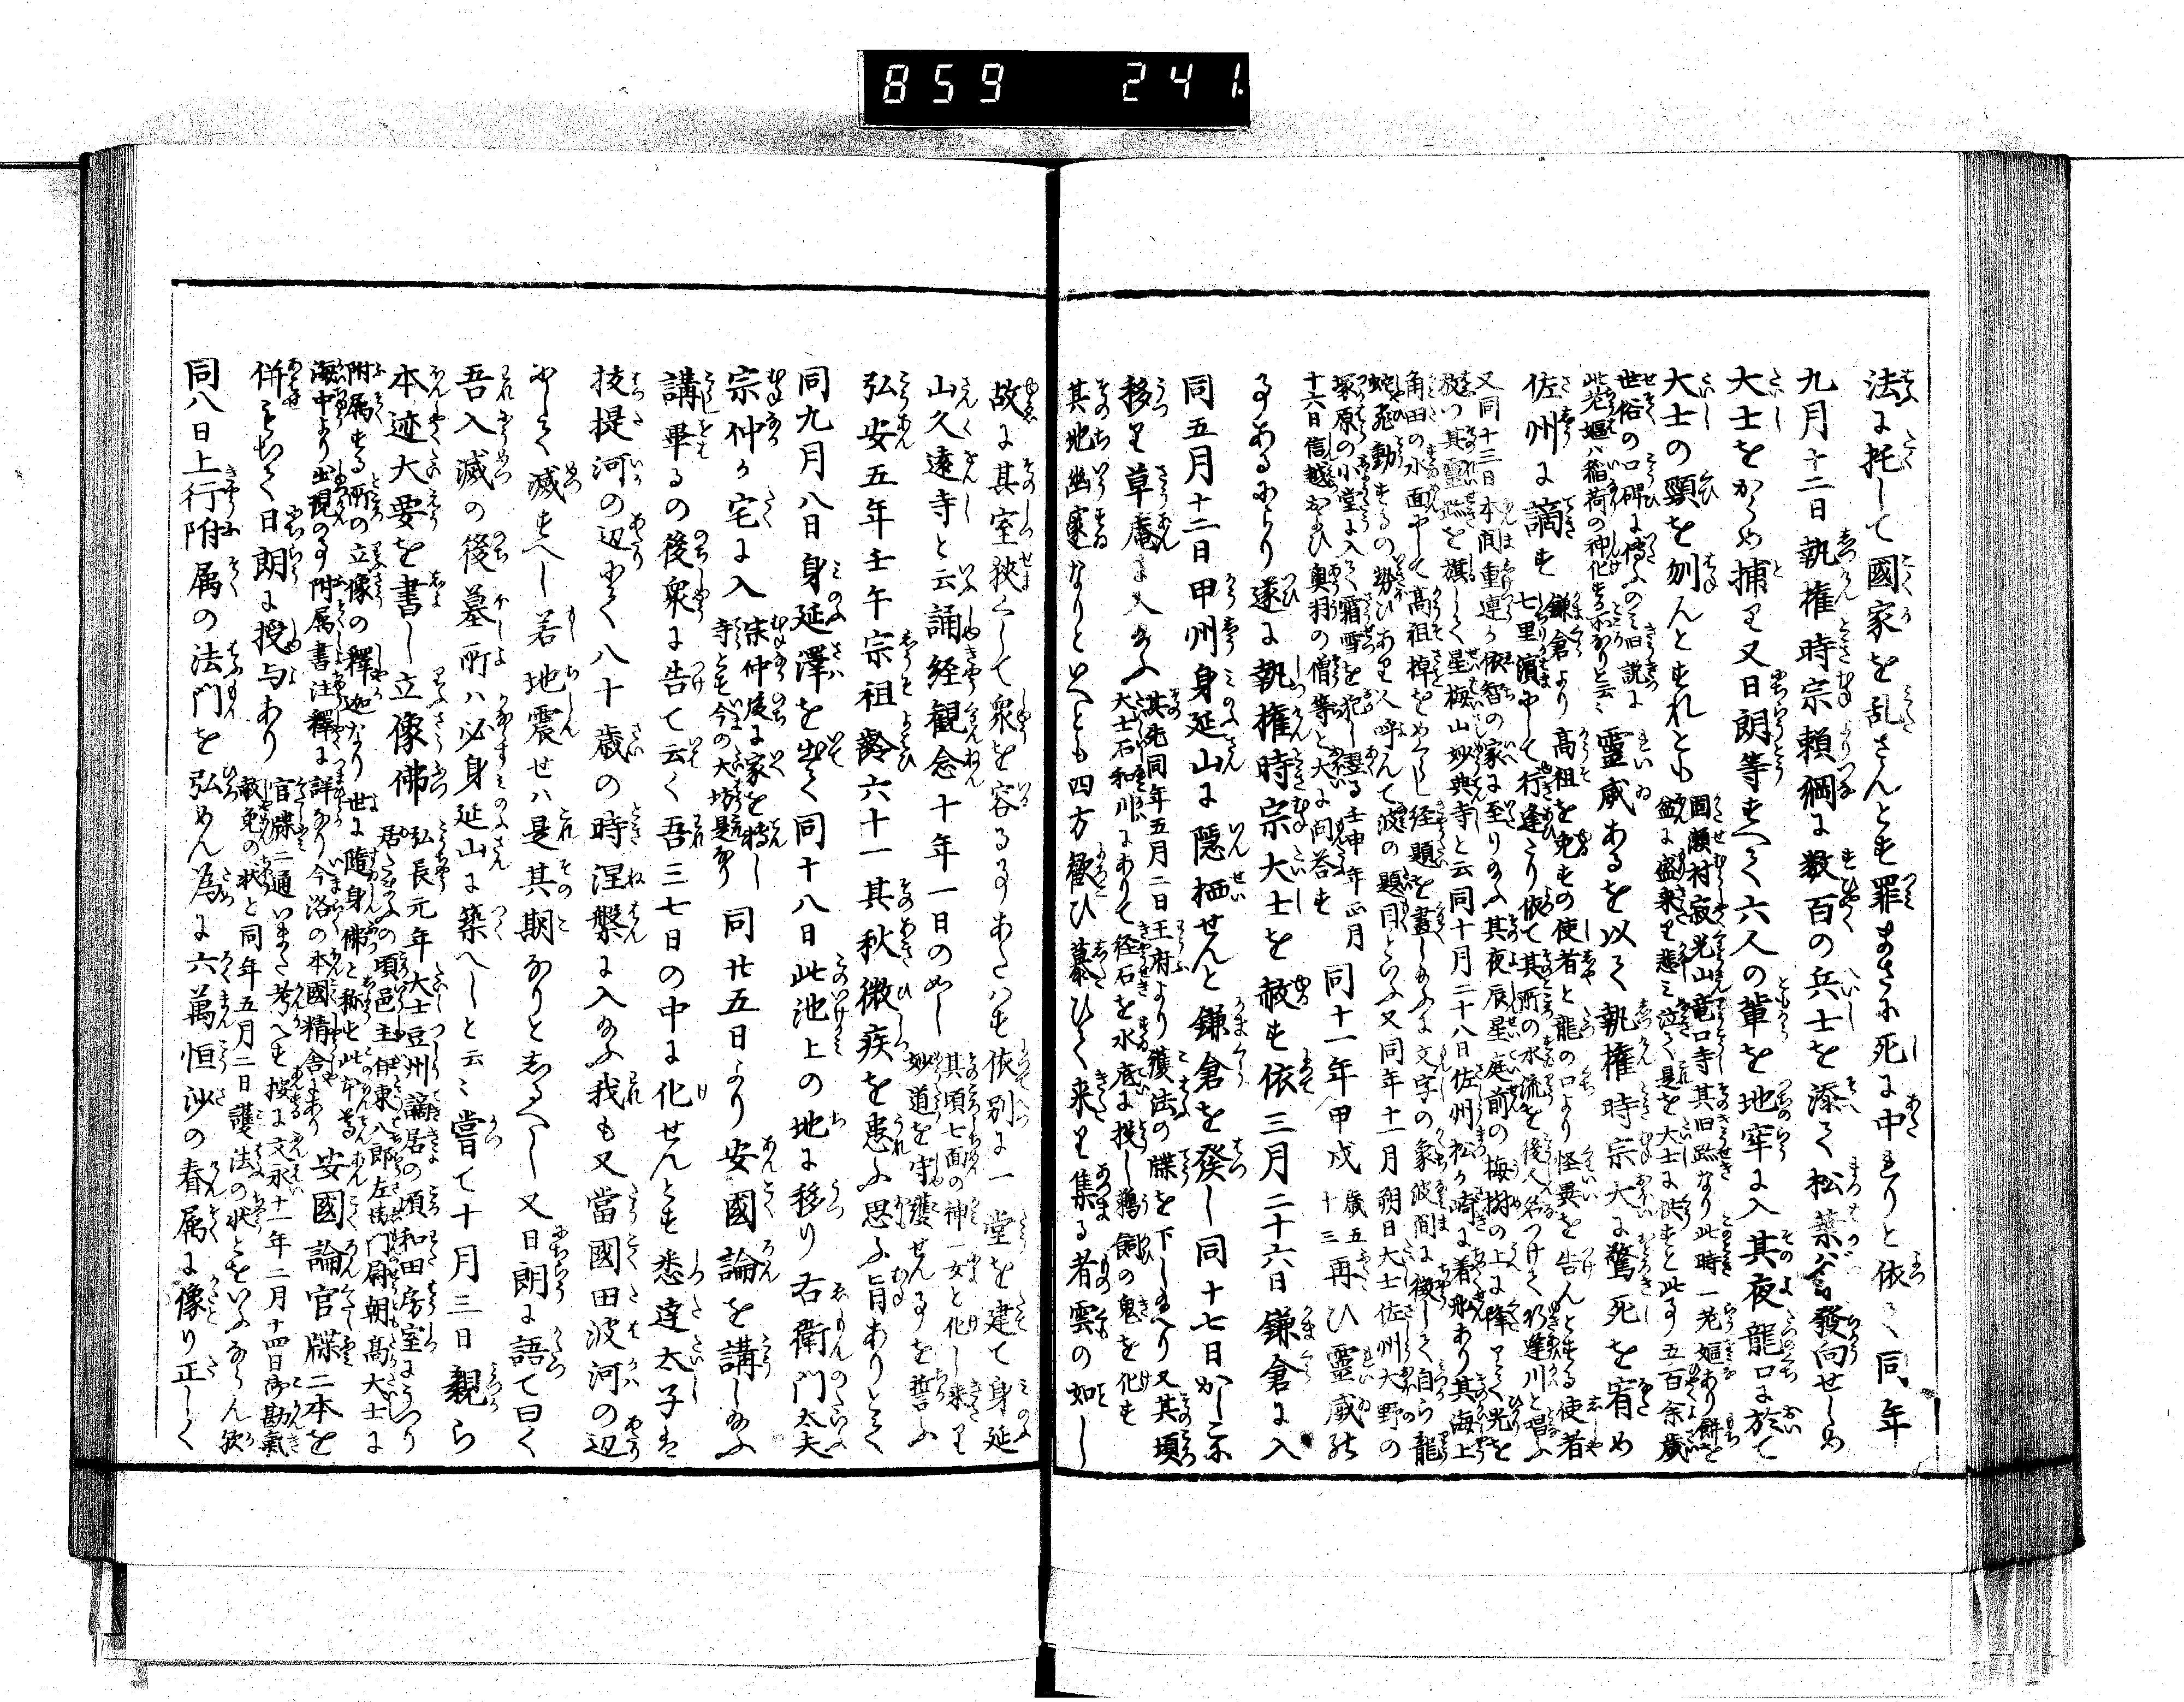 859 241.
法に托して國家を乱さんとす罪まさに死に中れりと依て同年
九月十二日執権時宗頼綱に数百の兵士を添て松葉谷發向せしめ
大士をからめ捕り又日朗等すへて六人の輩を地牢に入其夜龍口に於て
大士の頸を刎んとすれとも
固瀬村寂光山竜口寺其旧跡なり此時一老嫗あり餅を
盆に盛来り悲み泣て是を大士に供すと此事五百余歳
世俗の口碑に傳ふのミ旧説に
此老嫗ハ稲荷の神化する所なりと云々
霊威あるを以て執権時宗大に驚死を宥め
佐州に謫す
鎌倉より高祖を免すの使者と龍の口より怪異を告んとする使者
七里濱にして行逢たり依て其所の水流を後人名つけて行逢川と唱ふ
又同十三日本間重連か依智の家に至り給ふ其夜辰星庭前の梅樹の上に降りて光を
放つ其霊跡を旗して星梅山妙典寺と云同十月二十八日佐州松か崎に着船あり其海上
角田の水面にして高祖棹をめくらし経題を畫し給ふに文字の象波間に種して自ら龍
蛇飛動するの勢ひあり人呼んて波の題目といふ又同年十一月朔日大士佐州大野の
塚原の小堂に入て霜雪を犯し翌る壬申年正月
十六日信越および奥羽の僧等と大に問答す
同十一年甲戌
歳五
十三
再ひ霊威の
事あるにより遂に執権時宗大士を赦す依三月二十六日鎌倉に入
同五月十二日甲州身延山に隠栖せんと鎌倉を發し同十七日かしこに
移り草庵に入給ふ
其先同年五月二日王府より護法の牒を下し給へり又其頃
大士石和川にありて経石を水底に投し鵜飼の鬼を化す
其地幽邃なりといへとも四方歓ひ慕ひて来り集る者雲の如し
故に其室狭くして衆を容るゝ事あたハす依別に一堂を建て身延
山久遠寺と云誦経観念十年一日の如し
其頃七面の神一女と化し来り
妙道を守護せん事を誓ふ
弘安五年壬午宗祖齢六十一其秋微疾を患ふ思ふ旨ありとて
同九月八日身延澤を出て同十八日此池上の地に移り右衛門太夫
宗仲か宅に入
宗仲後に家を轉し
寺とす今の大坊是なり
同廿五日より安國論を講し給ふ
講畢るの後衆に告て云く吾三七日の中に化せんとす悉達太子は
技提河の辺にて八十歳の時涅槃に入給ふ我も又當國田波河の辺
にして滅すへし若地震せハ是其期なりとしるへし又日朗に語て曰く
吾入滅の後墓所ハ必身延山に築へしと云々嘗て十月三日親ら
本迹大要を書し立像佛
弘長元年大士豆州謫居の頃和田房室にうつり
居たまふの頃邑主伊東八郎左衛門尉朝髙大士に
附属する所の立像の釋迦なり世に隨身佛と称す此本尊
海中より出現の事附属書注釋に詳なり今洛の本國精舎にあり
安國論官牒二本を
併せおきて日朗に授与あり
官牒二通いまた考へす按に文永十一年二月十四日御勘氣
赦免の状と同年五月二日護法の状とをいふならん欤
同八日上行附属の法門を弘めん為に六萬恒沙の眷属に像り正しく